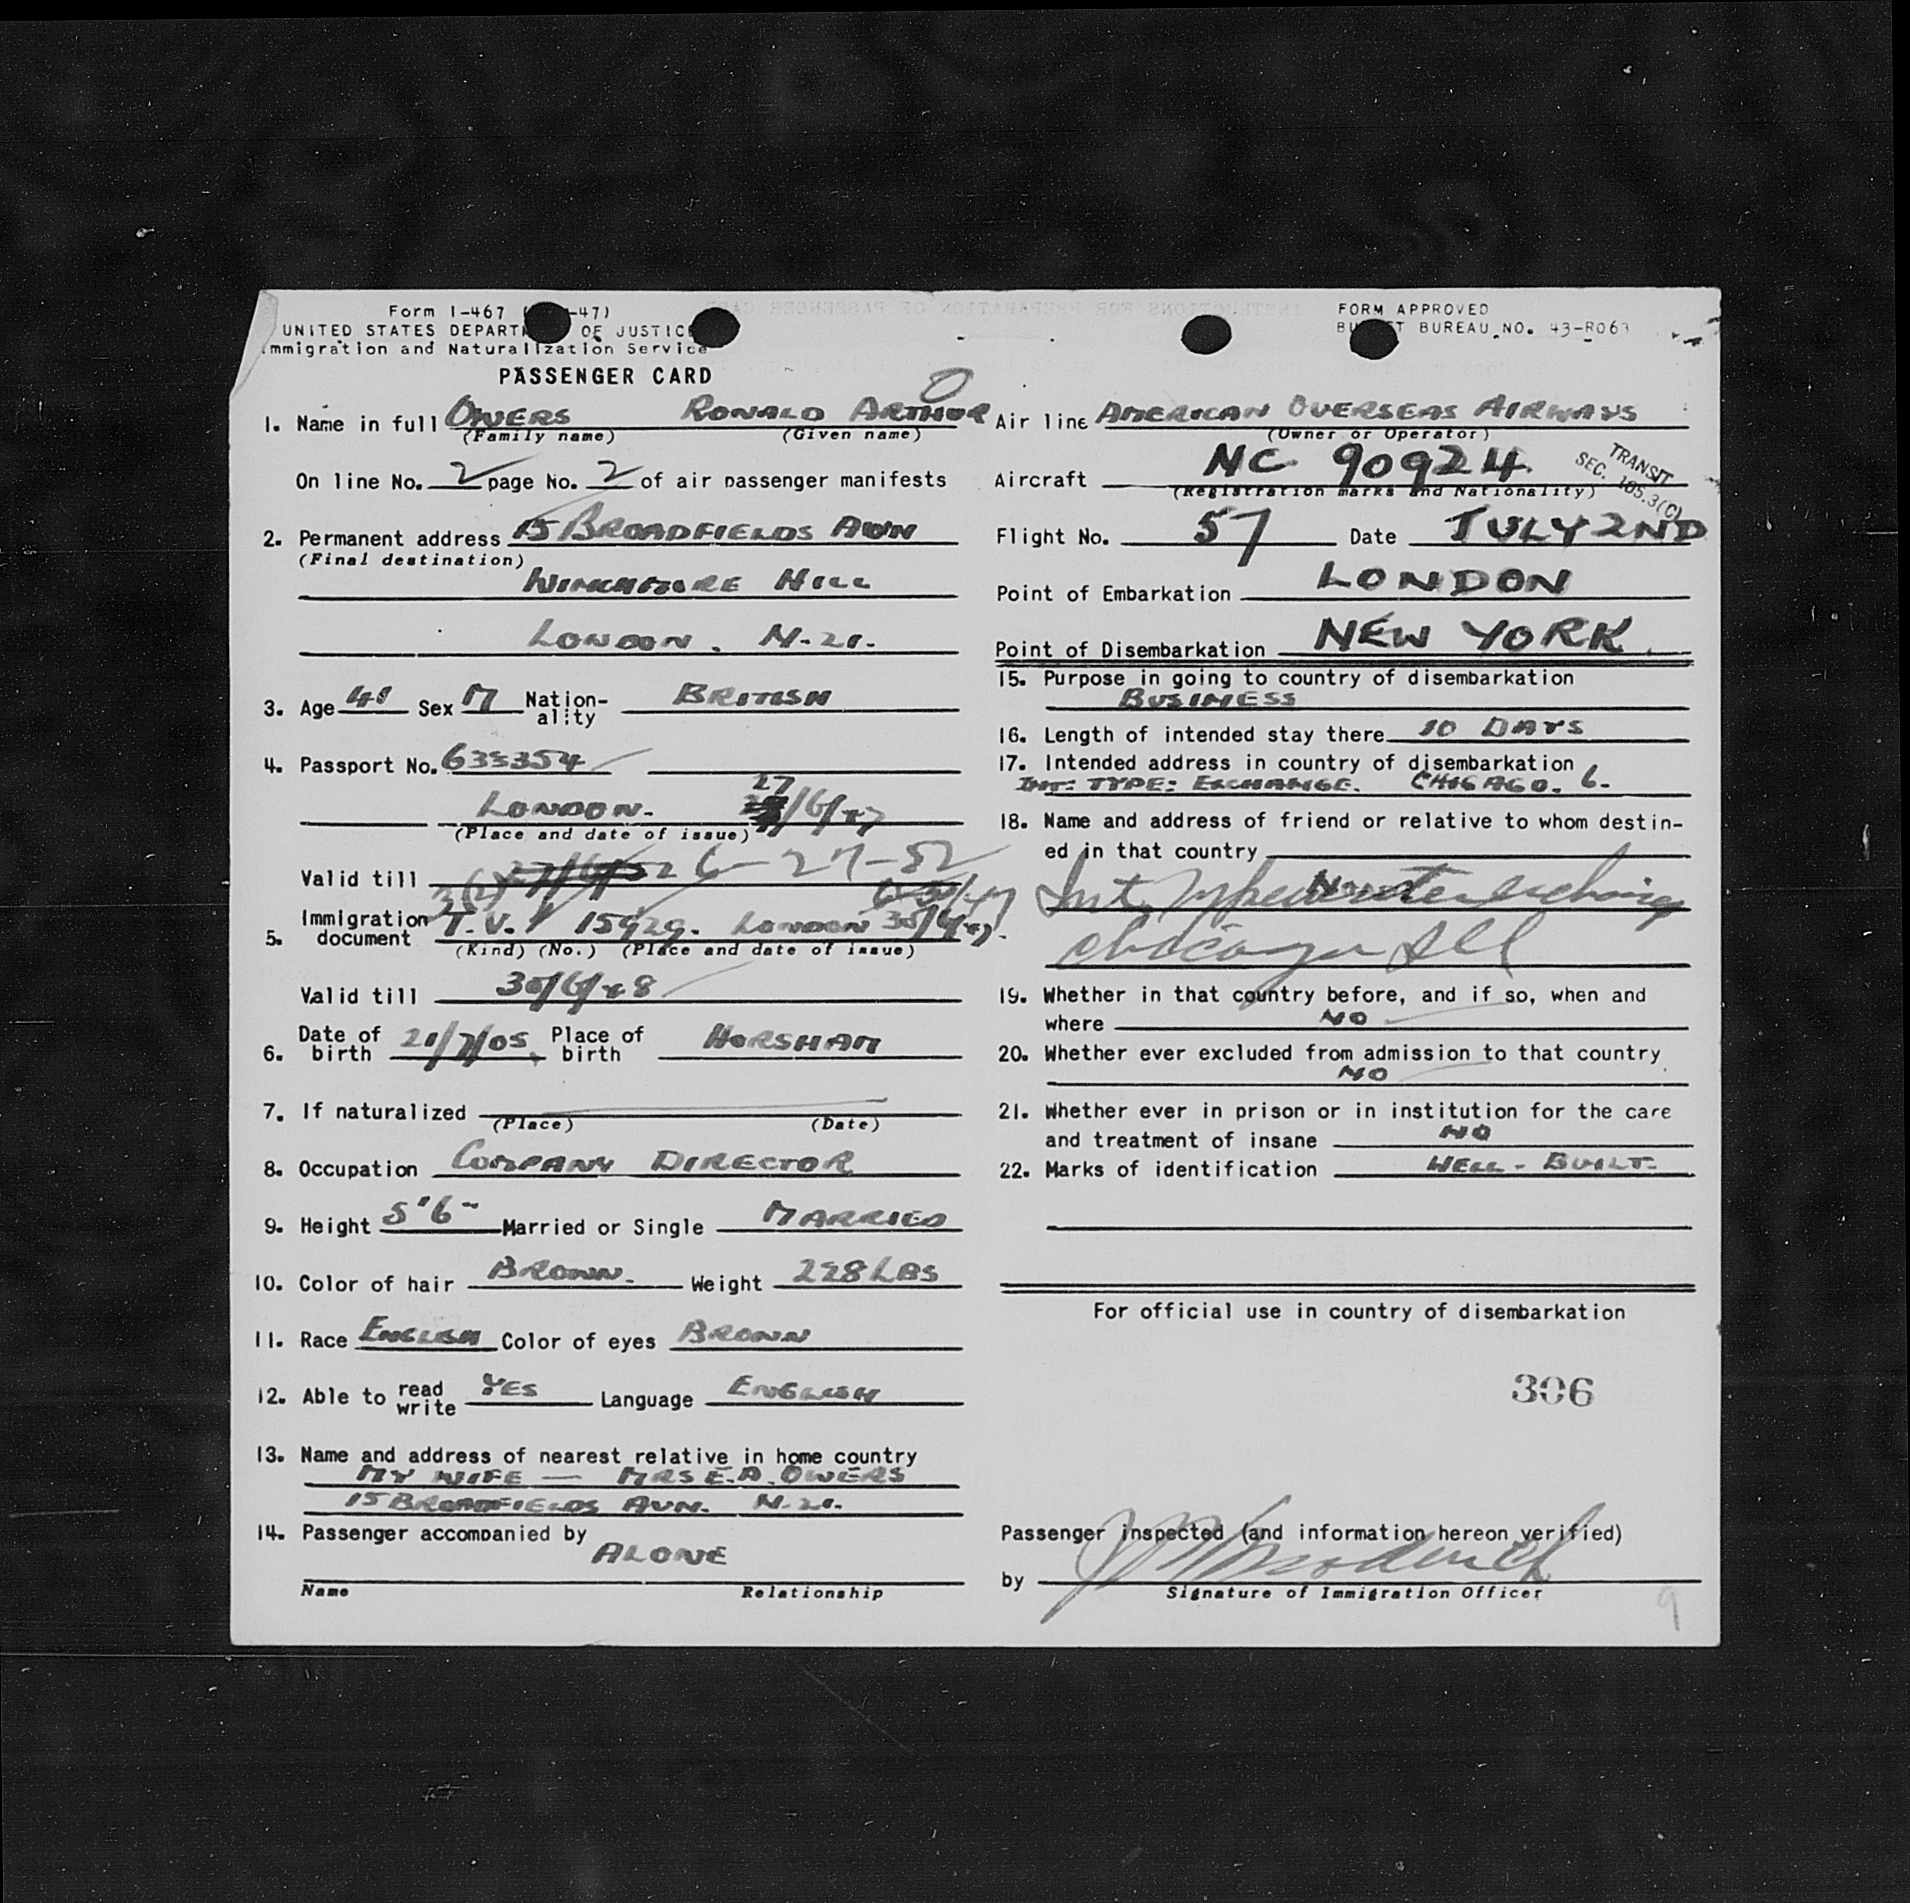 Form I-467 -47)
UNITED STATES DEPART OF JUSTIC
Immigration and Naturalization Service
PASSENGER CARD
FORM APPROVED
BU T BUREAU NO. 43-R063
1. Name in full OWERS RONALD ARTHUR
(Family name) (Given name)
On line No. 2 page No. 2 of air passenger manifests
2. Permanent address 15 BROADFIELDS AVN
(Final destination)
WINCHMORE HILL
LONDON. N.21.
3. Age 41 Sex M Nation-ality BRITISH
4. Passport No. 633354
LONDON. 27/6/47
(Place and date of issue)
Valid till 27/6/52 6-27-52
3(2) 6-30-47
5. Immigration document T.V. 15929. LONDON 30/6/47.
(Kind) (No.) (Place and date of issue)
Valid till 30/6/48
6. Date of birth 21/7/05 Place of birth HORSHAM
7. If naturalized
(Place) (Date)
8. Occupation COMPANY DIRECTOR
9. Height 5'6" Married or Single MARRIED
10. Color of hair BROWN. Weight 228 LBS
11. Race ENGLISH Color of eyes BROWN
12. Able to read write YES Language ENGLISH
13. Name and address of nearest relative in home country
MY WIFE — MRS E.A. OWERS
15 BROADFIELDS AVN. N.21.
14. Passenger accompanied by
ALONE
Name Relationship
Air line AMERICAN OVERSEAS AIRWAYS
(Owner or Operator)
Aircraft NC 90924
(Registration marks and Nationality)
TRANSIT
SEC. 105.3(C)
Flight No. 57 Date JULY 2ND
Point of Embarkation LONDON
Point of Disembarkation NEW YORK.
15. Purpose in going to country of disembarkation
BUSINESS
16. Length of intended stay there 10 DAYS
17. Intended address in country of disembarkation
INT: TYPE: EXCHANGE. CHICAGO. 6.
18. Name and address of friend or relative to whom destin-
ed in that country
Int. Typewriter exchange
Chicago Ill
19. Whether in that country before, and if so, when and
where NO
20. Whether ever excluded from admission to that country
NO
21. Whether ever in prison or in institution for the care
and treatment of insane NO
22. Marks of identification WELL-BUILT
For official use in country of disembarkation
306
Passenger inspected (and information hereon verified)
by
Signature of Immigration Officer
9